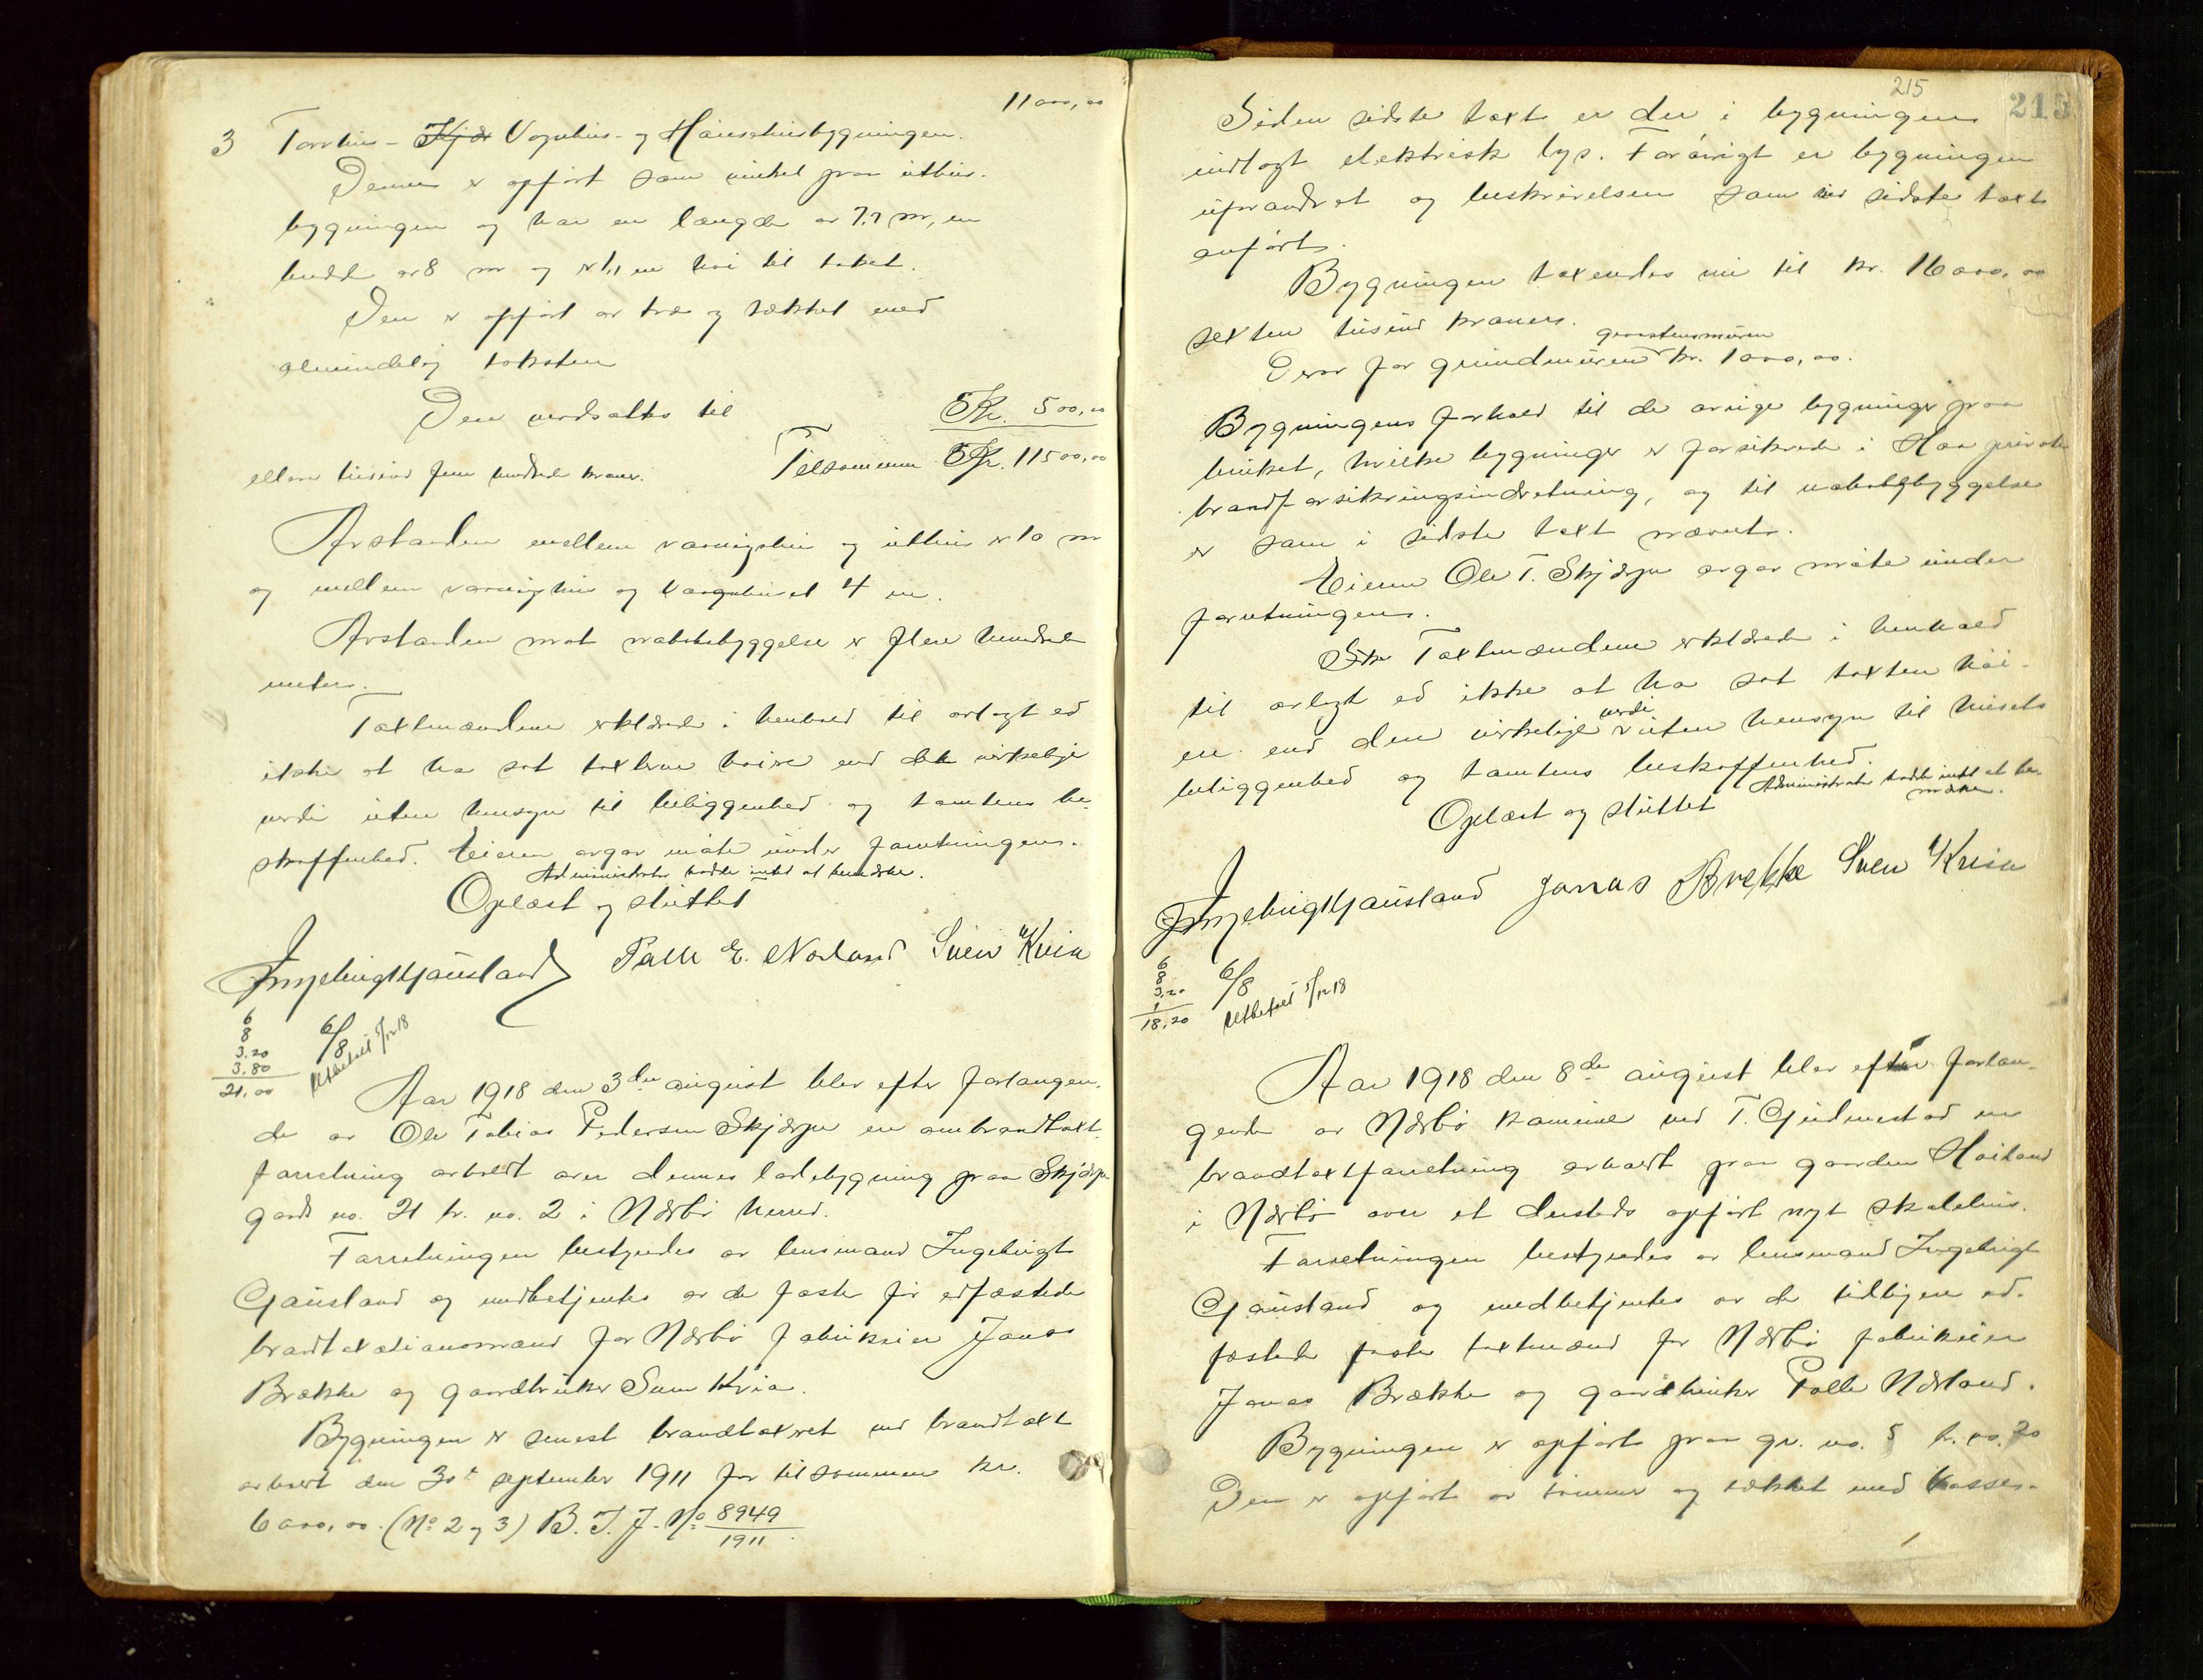 11000,00
3 Torvhus- Kjør Vognhus- og Hønsehusbygningen.
Denne er opført som vinkel paa uthus-
bygningen og har en længde av 7,7 m, en
bredde av 8 m og er 1,1 m høi til taket.
Den er opført av træ og tækket med
almindelig taksten
Den verdsattes til Kr. 500,00
Tilsammen Kr. 11500,00
elleve tusind fem hundrede kroner.
Avstanden mellem vaaningshus og uthus er 10 m
og mellem vaaningshus og 4 m.
Avstanden mot nabobebyggelse er flere hundrede
meter.
Taxtmændene erklærede i henhold til avlagt ed
ikke at ha sat taxterne høiere end det virkelige
verdi uten hensyn til beliggenhed og tomtens be-
skaffenhed. Eieren avgav møte under forretningen.
Administrator hadde intet at bemærke.
Oplæst og sluttet
Ingebrigt Gausland Palle E. Nærland Sven Kvia
6
8
3.20
3.80
21,00
6/8
Utbetalt 5/12 18
Aar 1918 den 3die august blev efter forlangen-
de av Ole Tobias Pedersen Skjærpe en ombrandtaxt-
forretning avholdt over dennes ladebygning paa Skjærpe
gaards no. 21 br. no. 2 i Nærbø herred.
Forretningen bestyredes av lensmand Ingebrigt
Gausland og medbetjentes av de faste før edfæstede
brandtaxationsmænd for Nærbø fabrikeier Jonas
Brække og gaardbruker Sven Kvia.
Bygningen er senest brandtaxeret ved brandtaxt
avholdt den 30te september 1911 for tilsammen kr.
6000,00. (No 2 og 3) B. T. J. No 8949
1911
215
215
Siden sidste taxt er der i bygningen
indlagt elektrisk lys. Forøvrigt er bygningen
uforandret og beskrivelsen som ved sidste taxt
anført.
Bygningen taxerdes nu til kr. 16000,00
sexten tusind kroner.
graastensmuren
Derav for grundmuren kr. 1000,00.
Bygningens forhold til de øvrige bygninger paa
bruket, hvilke bygninger er forsikrede i Haa private
brandforsikringsindretning, og til nabobebyggelse
er som i sidste taxt nævnt.
Eieren Ole T. Skjærpe avgav møte under
forretningen.
Taxtmændene erklærede i henhold
til avlagt ed ikke at ha sat taxten høi-
ere end den virkelige verdi uten hensyn til husets
beliggenhed og tomtens beskaffenhed.
Administrator hadde intet at be-
mærke.
Oplæst og sluttet
Ingebrigt Gausland Jonas Brekke Sven Kvia
6
8
3,20
1
18,20
6/8
Utbetalt 5/12 18
Aar 1918 den 8de august blev efter forlan-
gende av Nærbø kommune ved T. Gudmestad en
brandtaxtforretning avholdt paa gaarden Høiland
i Nærbø over et dersteds opført nyt skolehus.
Forretningen bestyredes av lensmand Ingebrigt
Gausland og medbetjentes av de tidligere ed-
fæstede faste taxtmænd for Nærbø fabrikeier
Jonas Brække og gaardbruker Palle Nærland.
Bygningen er opført paa gr. no. 5 br. no. 20
Den er opført av tømmer og tækket med